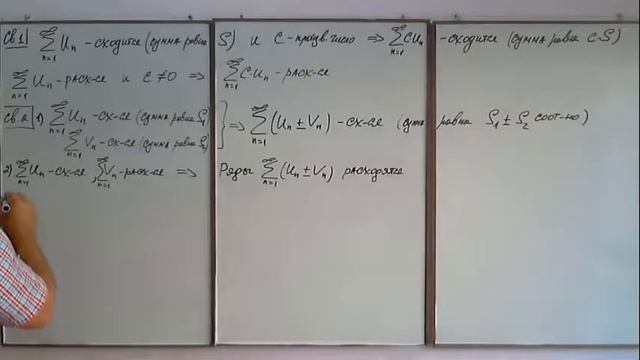 Св 1) ∑_{n=1}^{∞} Un - сходится (сумма равна S) и C - произв. число ⇒ ∑_{n=1}^{∞} CUn - сходится (сумма равна C·S)
∑_{n=1}^{∞} Un - расх-ся и C ≠ 0 ⇒ ∑_{n=1}^{∞} C·Un - расх-ся
Св 2) 1) ∑_{n=1}^{∞} Un - сх-ся (сумма равна S1) } ⇒ ∑_{n=1}^{∞} (Un ± Vn) - сх-ся (сумма равна S1 ± S2 соот-но)
∑_{n=1}^{∞} Vn - сх-ся (сумма равна S2)
2) ∑_{n=1}^{∞} Un - сх-ся, ∑_{n=1}^{∞} Vn - расх-ся ⇒ Ряды ∑_{n=1}^{∞} (Un ± Vn) расходятся